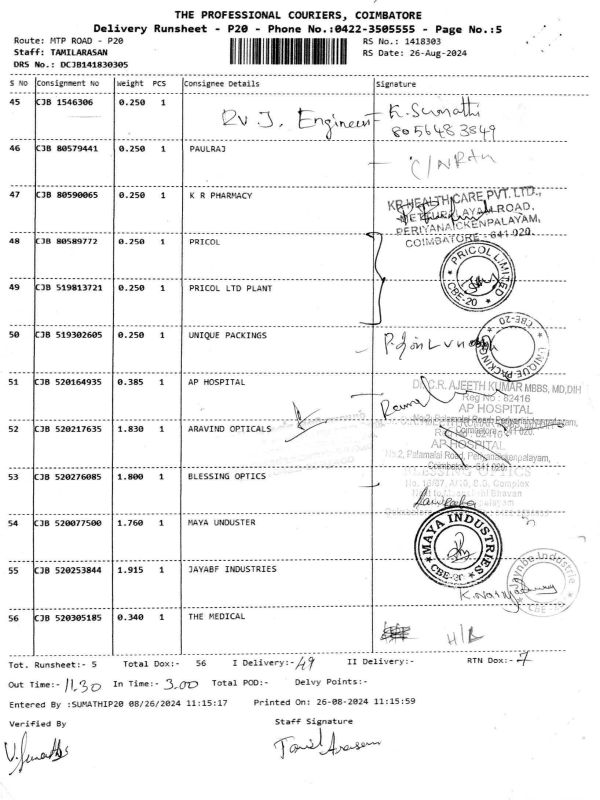 THE PROFESSIONAL COURIERS, COIMBATORE
Delivery Runsheet - P20 - Phone No.:0422-3505555 - Page No.:5
Route: MTP ROAD - P20
RS No.: 1418303
Staff: TAMILARASAN
RS Date: 26-Aug-2024
DRS No.: DCJB141830305
S No Consignment No Weight PCS Consignee Details Signature
45 CJB 1546306 0.250 1 RVJ. Engineers K. Sumathi
8056483849
46 CJB 80579441 0.250 1 PAULRAJ
47 CJB 80590065 0.250 1 K R PHARMACY
KR HEALTH CARE PVT. LTD.,
METTUPALAYAM ROAD,
PERIYANAICKENPALAYAM,
COIMBATORE - 641 020.
48 CJB 80589772 0.250 1 PRICOL
PRICOL LIMITED
CBE-20
49 CJB 519813721 0.250 1 PRICOL LTD PLANT
50 CJB 519302605 0.250 1 UNIQUE PACKINGS
UNIQUE PACKINGS
CBE-20
51 CJB 520164935 0.385 1 AP HOSPITAL
Dr. C.R. AJEETH KUMAR MBBS, MD, DIH
Reg No : 82416
AP HOSPITAL
52 CJB 520217635 1.830 1 ARAVIND OPTICALS
AP HOSPITAL
No.2, Palamalai Road, Periyanaickenpalayam,
Coimbatore - 641 020.
53 CJB 520276085 1.800 1 BLESSING OPTICS
BLESSING OPTICS
54 CJB 520077500 1.760 1 MAYA UNDUSTER
MAYA INDUSTRIES
CBE-20
55 CJB 520253844 1.915 1 JAYABF INDUSTRIES
56 CJB 520305185 0.340 1 THE MEDICAL
Tot. Runsheet:- 5 Total Dox:- 56 I Delivery:- 49 II Delivery:- RTN Dox:- 7
Out Time:- 11.30 In Time:- 3.00 Total POD:- Delvy Points:-
Entered By :SUMATHIP20 08/26/2024 11:15:17 Printed On: 26-08-2024 11:15:59
Verified By Staff Signature
V. Sumathi Tamil Arasan